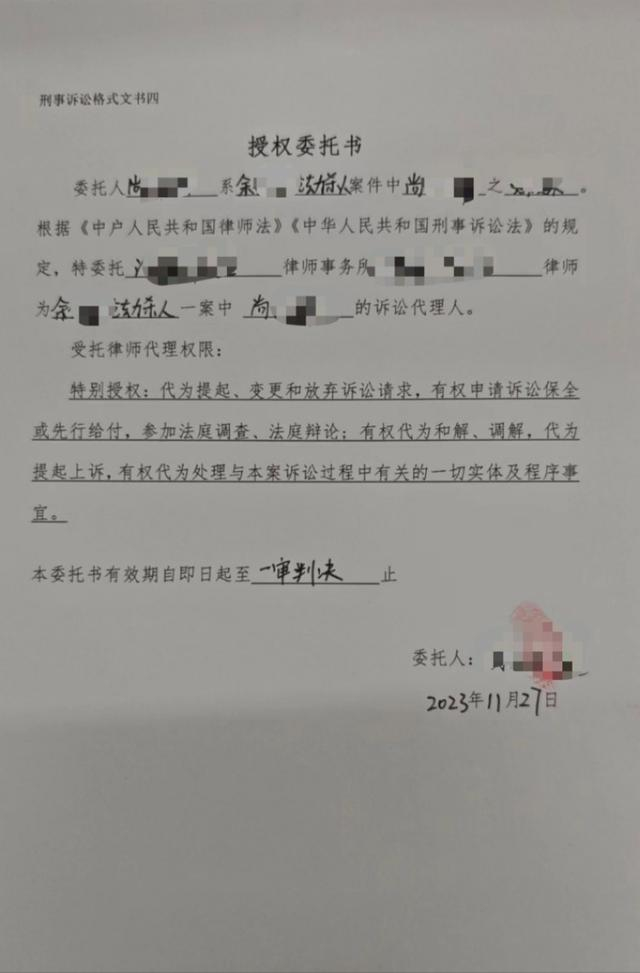 刑事诉讼格式文书四
授权委托书
委托人尚 系余 法定代理人案件中尚 之 。
根据《中户人民共和国律师法》《中华人民共和国刑事诉讼法》的规
定，特委托 律师事务所 律师
为余 一案中 尚 的诉讼代理人。
受托律师代理权限：
特别授权：代为提起、变更和放弃诉讼请求，有权申请诉讼保全
或先行给付，参加法庭调查、法庭辩论；有权代为和解、调解，代为
提起上诉，有权代为处理与本案诉讼过程中有关的一切实体及程序事
宜。
本委托书有效期自即日起至一审判决止
委托人：
2023年11月27日